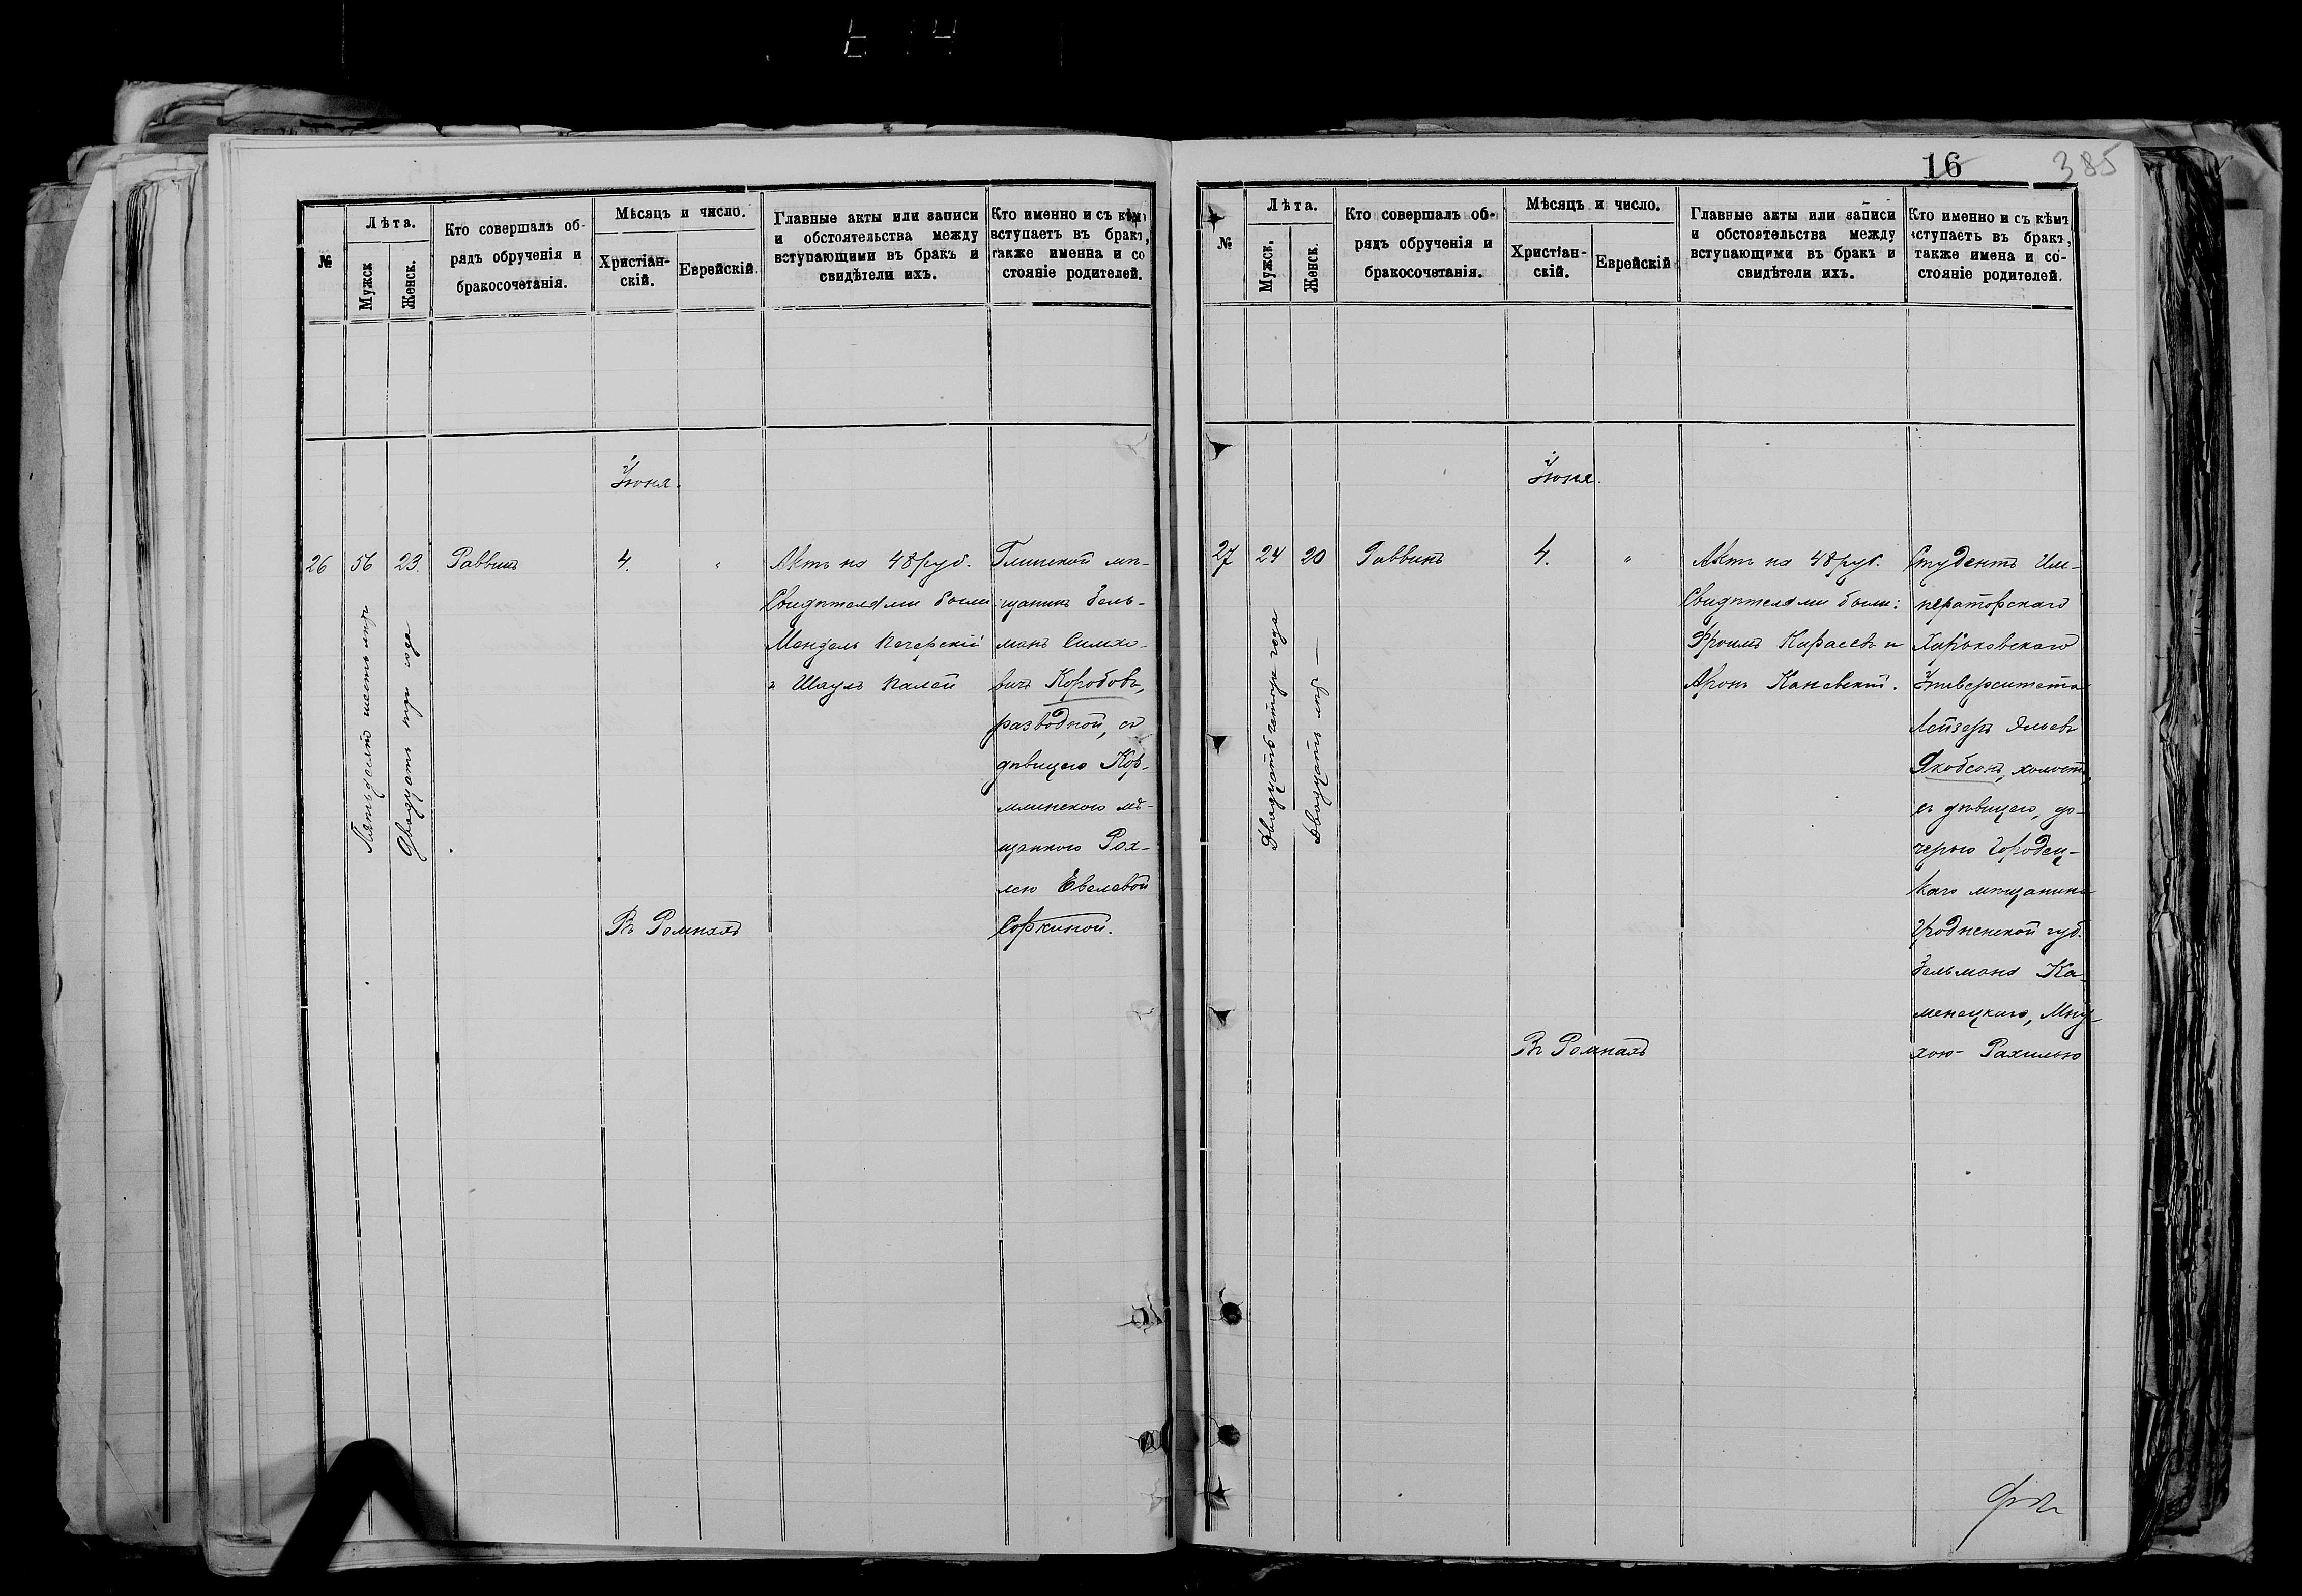 16
385
№
Лѣта.
Мужск
Женск.
Кто совершалъ об-
рядъ обрученія и
бракосочетанія.
Мѣсяцъ и число.
Христіан-
скій.
Еврейскій.
Главные акты или записи
и обстоятельства между
вступающими въ бракъ и
свидѣтели ихъ.
Кто именно и съ кѣмъ
вступаетъ въ бракъ,
также именна и со
стояніе родителей.
Іюня.
26
56
Пятьдесятъ шесть лѣтъ
23.
Двадцать три года
Раввинъ
4.
"
Въ Ромнахъ
Актъ на 48 руб.
Свидѣтелями были:
Мендель Печерскій
и Шаулъ Палей
Глинскій мѣ-
щанинъ Зель-
манъ Симхо-
вичъ Коробовъ,
разводной, съ
дѣвицею Кор-
млинскою мѣ-
щанкою Рах-
лею Евелевой
Соркиной.
№
Лѣта.
Мужск.
Женск.
Кто совершалъ об-
рядъ обрученія и
бракосочетанія.
Мѣсяцъ и число.
Христіан-
скій.
Еврейскій
Главные акты или записи
и обстоятельства между
вступающими въ бракъ и
свидѣтели ихъ.
Кто именно и съ кѣмъ
вступаетъ въ бракъ,
также имена и со-
стояніе родителей.
Іюня.
27
24
Двадцать четыре года
20
Двадцать лѣтъ
Раввинъ
4.
"
Въ Ромнахъ
Актъ на 48 руб.
Свидѣтелями были:
Фроимъ Карасевъ и
Аронъ Каневскій.
Студентъ Им-
ператорскаго
Харьковскаго
Университета
Лейзеръ Эльевъ
Якобсонъ, холостъ,
съ дѣвицею, до-
черью Городец-
каго мѣщанина
Гродненской губ.
Зельмана Ка-
менецкаго, Мну-
хою-Рахилью